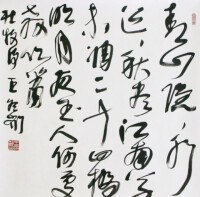 青山隐隐水
迢迢秋尽江南草
未凋二十四桥
明月夜玉人何处
教吹箫
杜牧诗